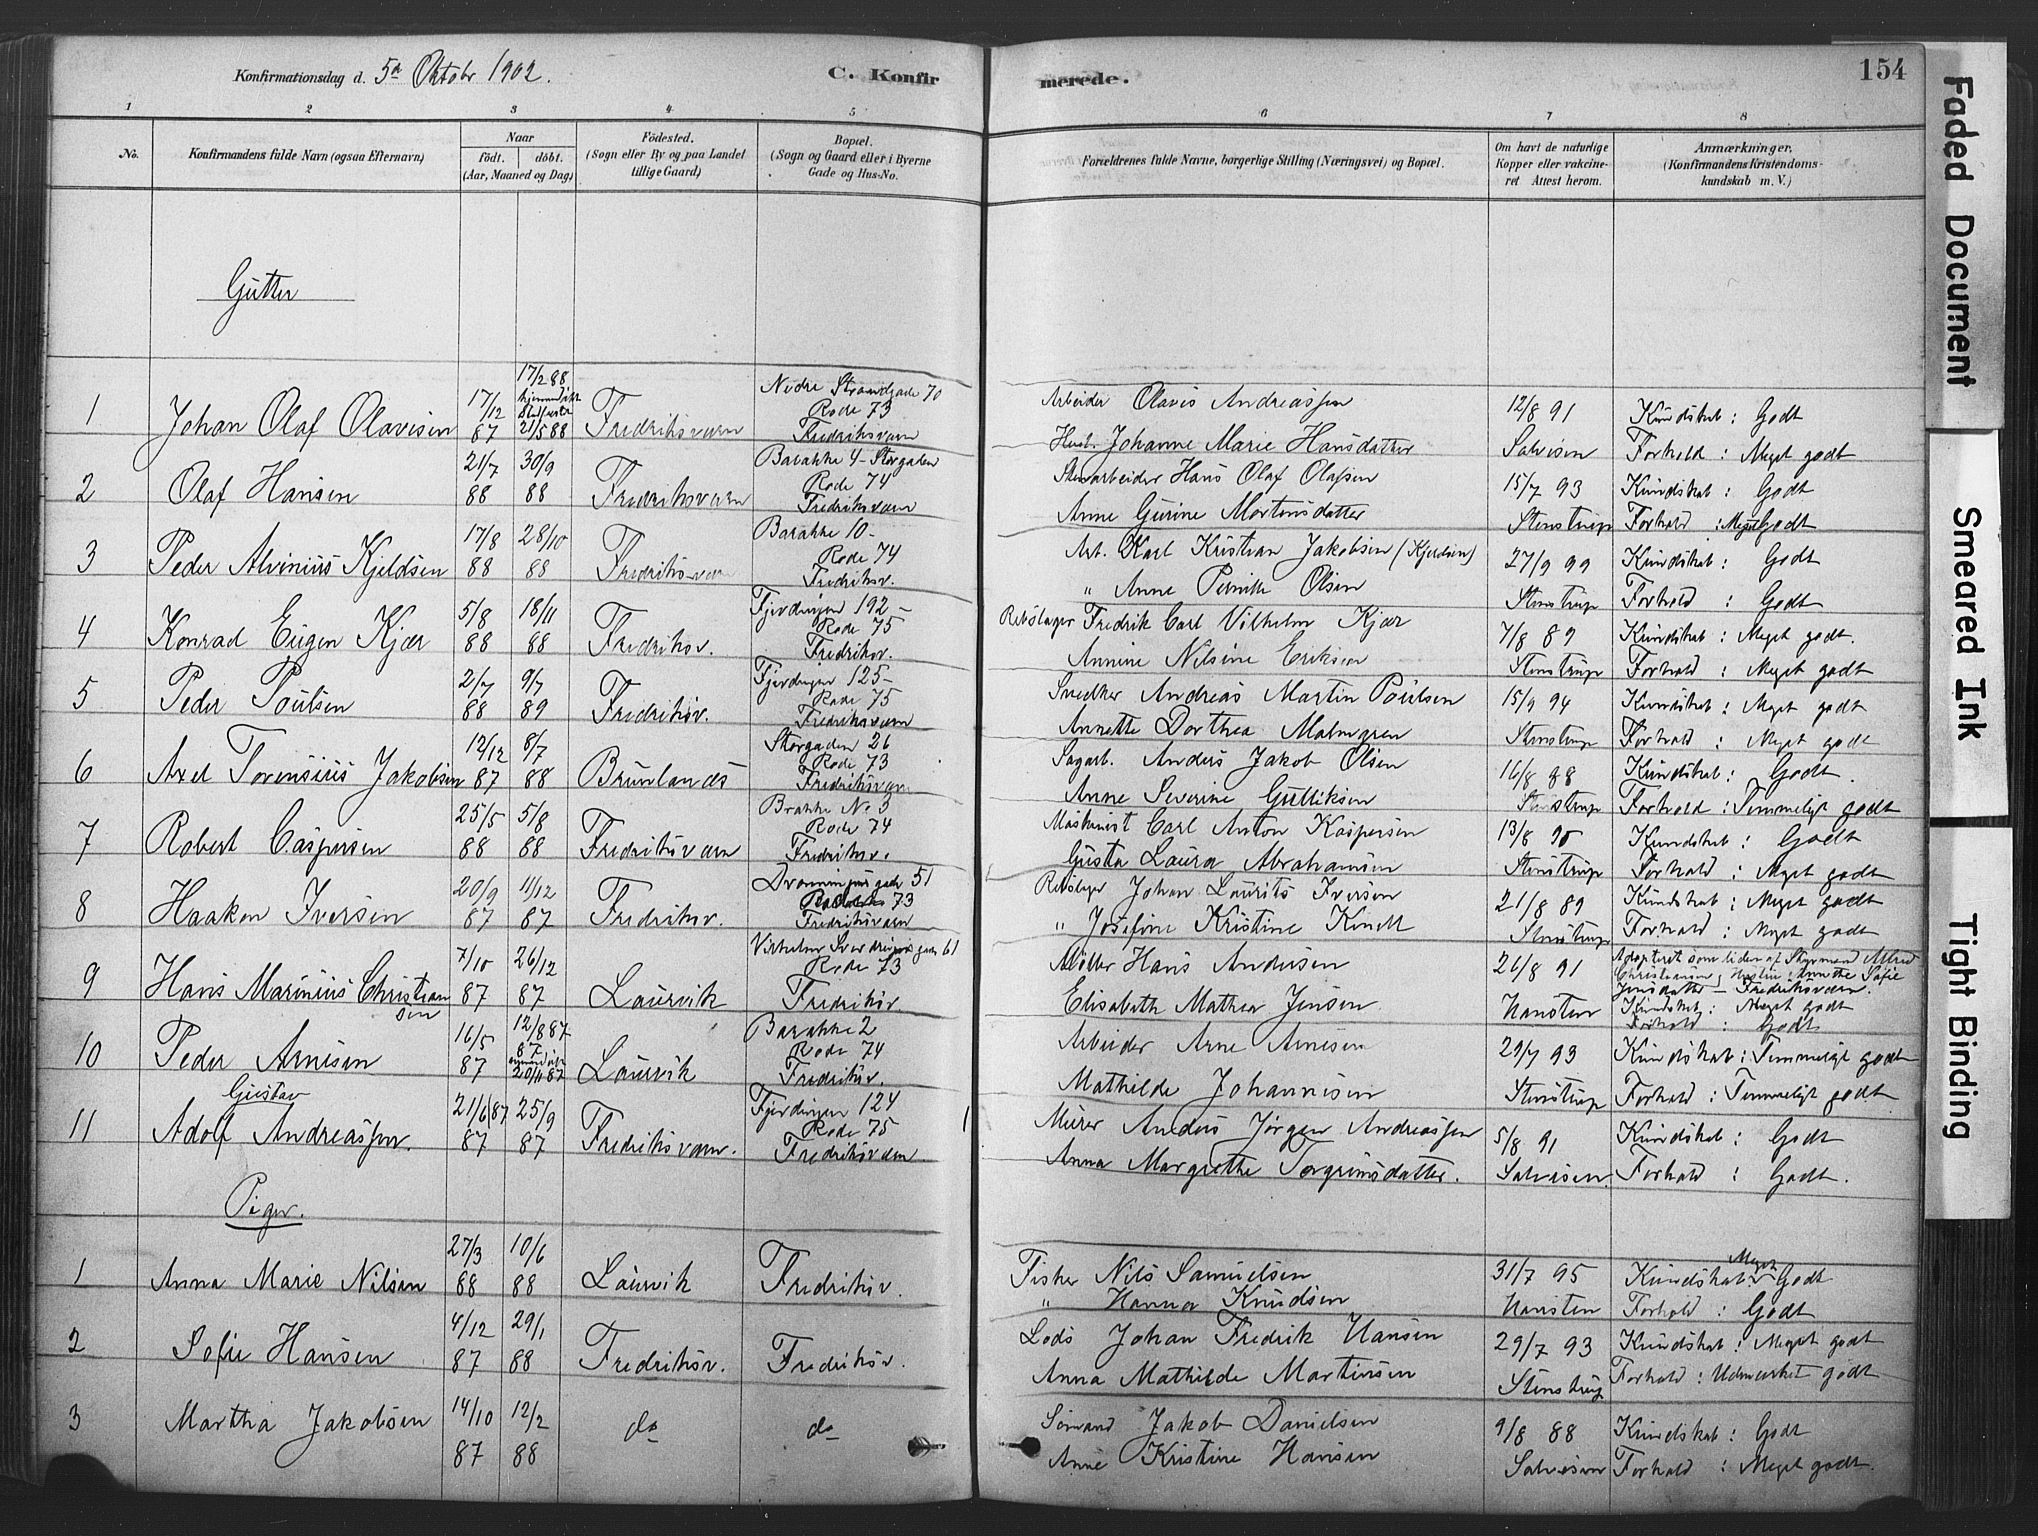 Konfirmationsdag d. 5te Oktobr 1902.
C. Konfirmerede.
154
1 2 3 4 5 6 7 8
No.
Konfirmandens fulde Navn (ogsaa Efternavn)
Naar
födt. döbt.
(Aar, Maaned og Dag)
Födested.
(Sogn eller By og paa Landet
tillige Gaard)
Bopæl.
(Sogn og Gaard eller i Byerne
Gade og Hus-No.
Forældrenes fulde Navne, borgerlige Stilling (Næringsvei) og Bopæl.
Om havt de naturlige
Kopper eller vakcine-
ret Attest herom.
Anmærkninger,
(Konfirmandens Kristendoms-
kundskab m. V.)
Gutter
1
Johan Olaf Olavisen
17/12 87
17/2 88
Stadfæstet
21/5 88
Fredriksværn
Nedre Strandgade 70
Rode 73
Fredriksværn
Arbeider Olavis Andreassen
Hust. Johanne Marie Hansdatter
12/8 91
Salvesen
Kundskab: Godt
Forhold: Meget godt
2
Olaf Hansen
21/7 88
30/9 88
Fredriksværn
Barakke 4 - Storgaden
Rode 74
Fredriksværn
Stenarbeider Hans Olaf Olafsen
Anne Gurine Mortensdatter
15/7 93
Stenstrup
Kundskab: Godt
Forhold: Meget Godt
3
Peder Alvinius Kjeldsen
17/8 88
28/10 88
Fredriksværn
Barakke 10 -
Rode 74
Fredriksv.
Arb. Karl Kristian Jakobsen (Kjeldsen)
" Anne Pernille Olsen
27/9 99
Stenstrup
Kundskab: Godt
Forhold: Godt
4
Konrad Eugen Kjær
5/8 88
18/11 88
Fredriksv.
Fjerdingen 192 -
Rode 75
Fredriksv.
Rebslager Fredrik Carl Vilhelm Kjær
Annine Nilsine Eriksen
7/8 89
Stenstrup
Kundskab: Meget godt.
Forhold: Meget godt
5
Peder Poulsen
2/7 88
9/7 89
Fredriksv.
Fjerdingen 125 -
Rode 75
Fredriksværn
Snedker Andreas Martin Poulsen
Annette Dorthea Malmgren
15/9 94
Stenstrup
Kundskab: Meget godt
Forhold: Meget godt
6
Axel Torensius Jakobsen
12/12 87
8/7 88
Brunlanes
Storgaden 26
Rode 73
Fredriksværn
Sagarb. Anders Jakob Olsen
Anne Severine Gulliksen
16/8 88
Stenstrup
Kundskab: Godt.
Forhold: Temmelig godt
7
Robert Caspersen
25/5 88
5/8 88
Fredriksværn
Brakke No 3
Rode 74
Fredriksv.
Maskinist Carl Anton Kaspersen
Gusta Laura Abrahamsen
13/8 90
Stenstrup
Kundskab: Godt
Forhold: Meget godt
8
Haakon Iversen
20/9 87
11/12 87
Fredriksv.
Dronningensgade 51
73
Fredriksværn
Rebslager Johan Laurits Iversen
" Josefine Kristine
21/8 89
Stenstrup
Kundskab: Meget godt
Forhold: Meget godt
9
Hans Marinius Christian
sen
7/10 87
26/12 87
Laurvik
Vilhelm Sverdrupsgade 61
Rode 73
Fredriksv.
Möller Hans Andersen
Elisabeth Mathea Jensen
26/8 91
Hansten
Adopteret som liden af Styrmand Alfred
Christiansen og Hustru Annette Sofie
Jensdatter - Fredriksværn.
Kundskab: Meget godt
Forhold: Godt
10
Peder Arnesen
16/5 87
12/8 87
87
20/11 87
Laurvik
Barakke 2
Rode 74
Fredriksv.
Arbeider Arne Arnesen
Mathilde Johannesen
29/7 93
Stenstrup
Kundskab: Temmelig godt
Forhold: Temmeligt godt
11
Gustav
Adolf Andreassen.
21/6 87
87
25/9 87
Fredriksværn.
Fjerdingen 124
Rode 75
Fredriksværn
Murer Anders Jörgen Andreassen
Anna Margrethe Torgrimsdatter.
5/8 91
Salvesen.
Kundskab: Godt
Forhold: Godt.
Piger.
1
Anna Marie Nilsen
27/3 88
10/6 88
Laurvik
Fredriksv.
Fisker Nils Samuelsen
" Hanna Knudsen
31/7 95
Hansten
Kundskab: Meget Godt
Forhold: Godt
2
Sofie Hansen
4/12 87
29/1 88
Fredriksv.
Fredriksv.
Lods Johan Fredrik Hansen
Anna Mathilde Martinsen
29/7 93
Stenstrup
Kundskab: Meget godt
Forhold: Udmærket godt
3
Martha Jakobsen
14/10 87
12/2 88
do
do
Sömand Jakob Danielsen
Anne Kristine Hansen
9/8 88
Salvesen
Kundskab: Godt
Forhold: Meget godt.
Faded Document
Smeared Ink
Tight Binding